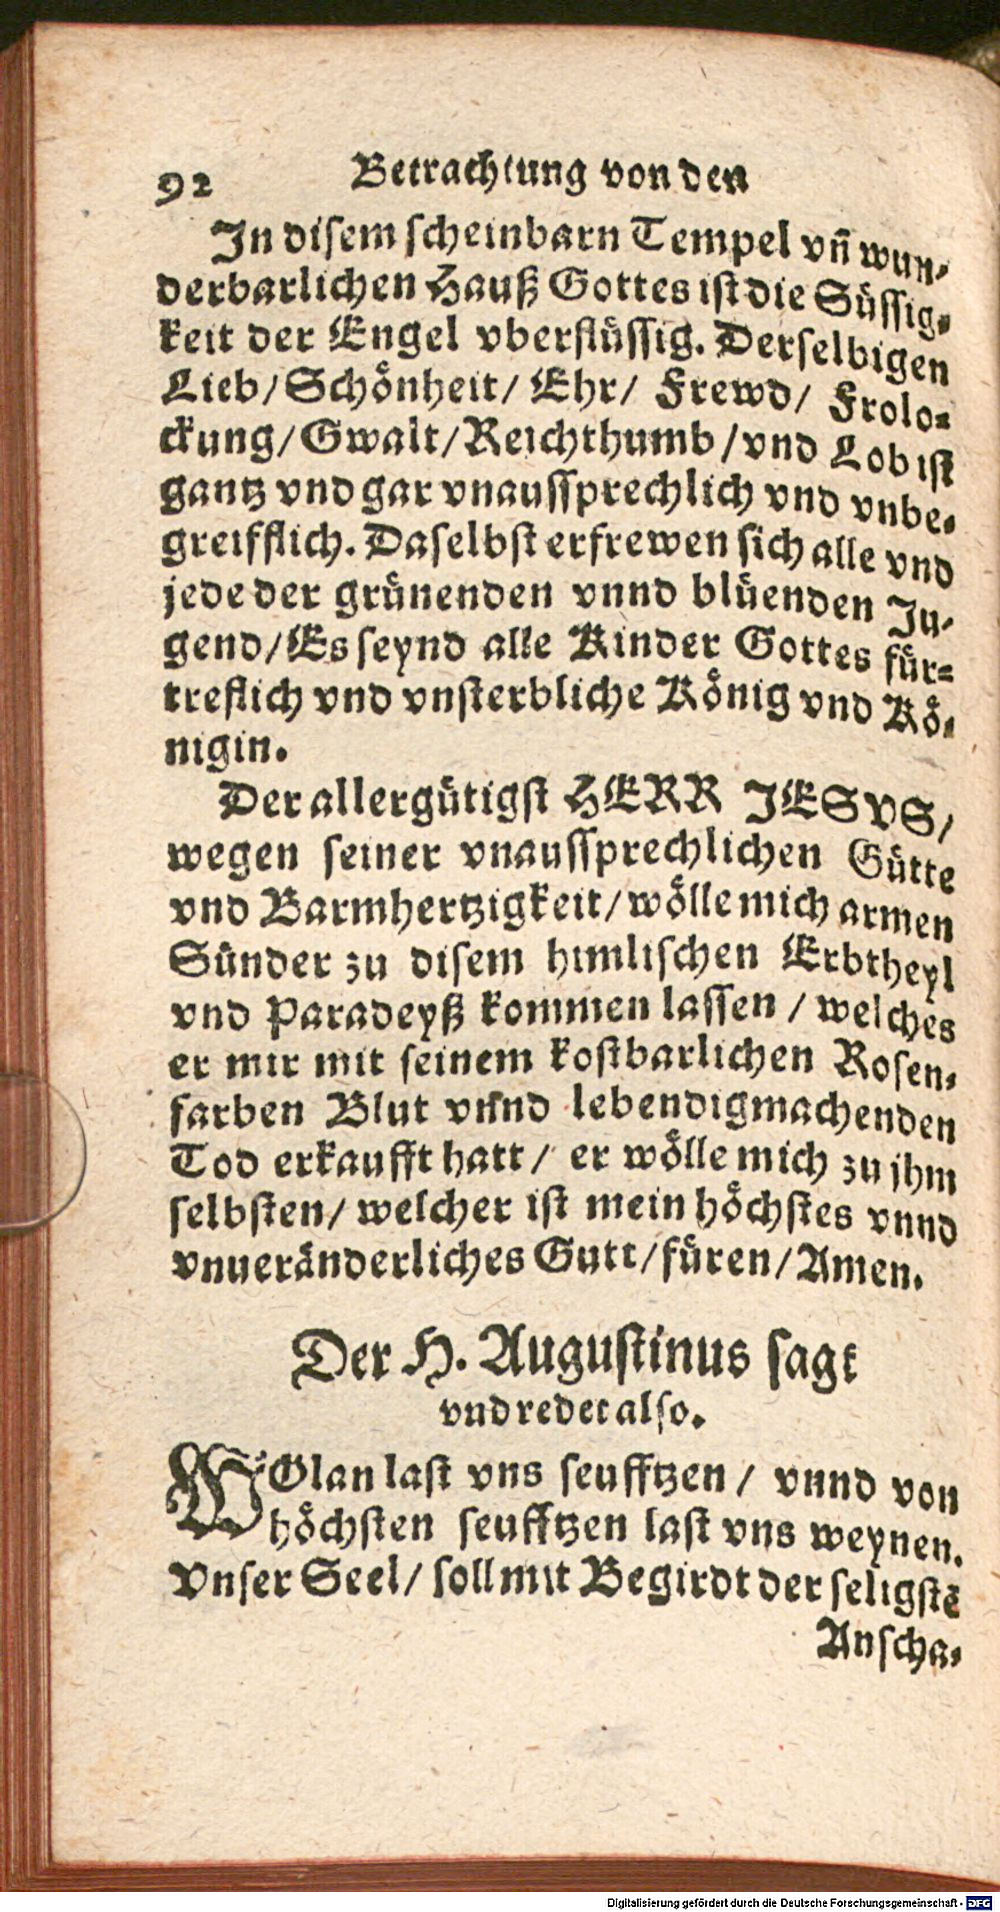 92 Betrachtung von den
In disem scheinbarn Tempel vñ wun-
derbarlichen Hauß Gottes ist die Süssig-
keit der Engel vberflüssig. Derselbigen
Lieb/ Schönheit/ Ehr/ Frewd/ Frolo-
ckung/ Gwalt/ Reichthumb/ vnd Lob ist
gantz vnd gar vnaussprechlich vnd vnbe-
greifflich. Daselbst erfrewen sich alle vnd
jede der grünenden vnnd blüenden Ju-
gend/ Es seynd alle Kinder Gottes für-
treflich vnd vnsterbliche König vnd Kö-
nigin.
Der allergütigst HERR JESVS/
wegen seiner vnaussprechlichen Gütte
vnd Barmhertzigkeit/ wölle mich armen
Sünder zu disem himlischen Erbtheyl
vnd Paradeyß kommen lassen / welches
er mir mit seinem kostbarlichen Rosen-
farben Blut vnnd lebendigmachenden
Tod erkaufft hatt/ er wölle mich zu jhm
selbsten/ welcher ist mein höchstes vnnd
vnueränderliches Gutt/ füren/ Amen.
Der H. Augustinus sagt
vnd redet also.
WOlan last vns seufftzen / vnnd von
höchsten seufftzen last vns weynen.
Vnser Seel/ soll mit Begirdt der seligstē
Anscha-
Digitalisierung gefördert durch die Deutsche Forschungsgemeinschaft - DFG